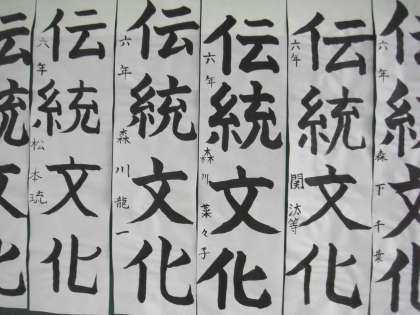 伝統文化
六年 森下千葉
伝統文化
六年 関
伝統文化
六年 森川菜々子
伝統文化
六年 森川龍一
伝統文化
六年 松本琉
伝統文化